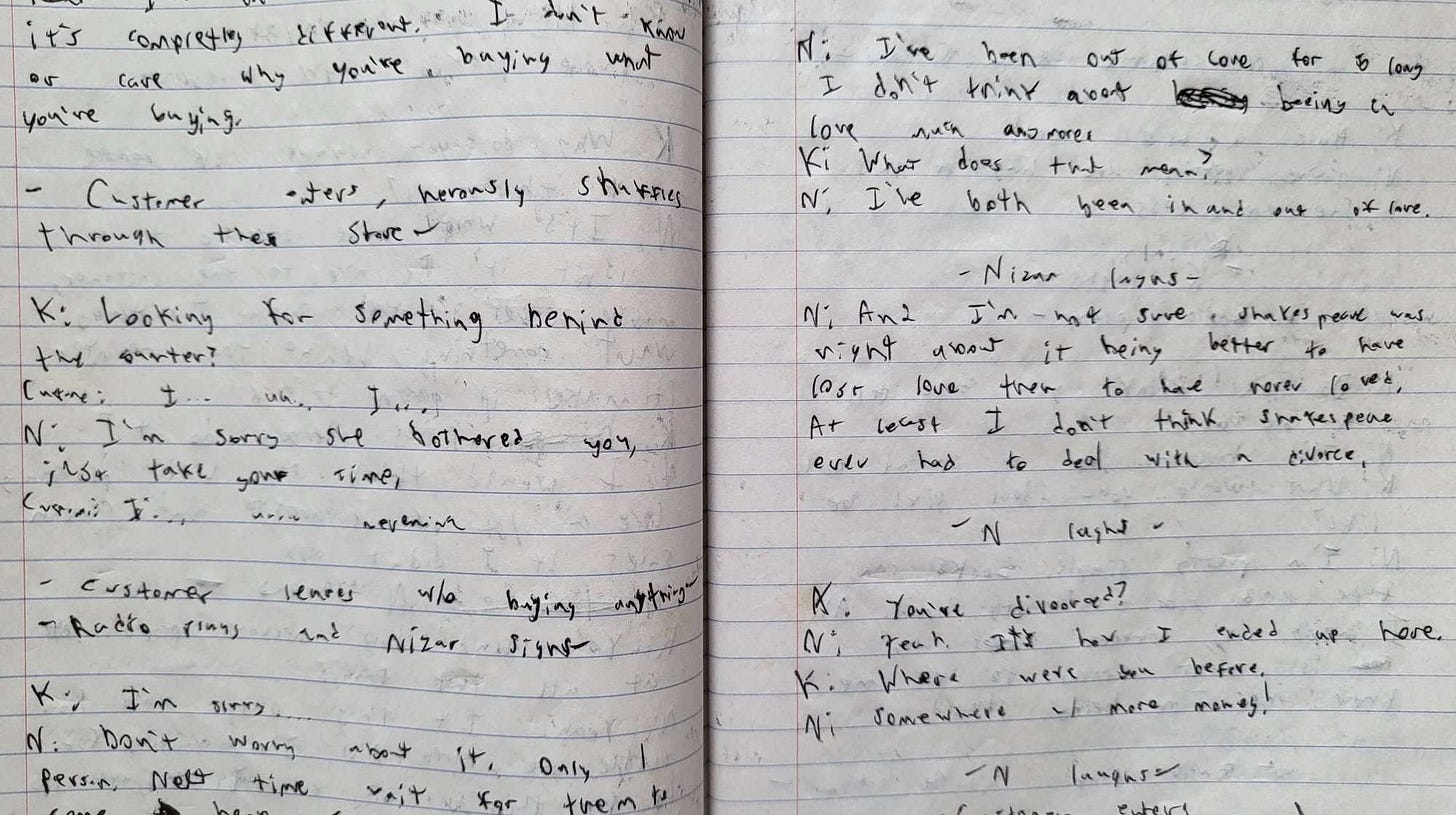 it's completley different. I don't know
or care why you're buying what
you're buying.
- Customer enters, nerously shuffles
through the store -
K: Looking for something behind
the counter?
I... uh... I....
N: I'm sorry she bothered you,
just take your time,
I....
- Customer leaves w/o buying anything -
- Radio plays and Nizar signs -
K: I'm sorry....
N: Don't worry about it. Only 1
person. Next time wait for them to
N: I've been out of love for so long
I don't think about beeing in
love much anymore.
K: What does that mean?
N: I've both been in and out of love.
- Nizar laghs -
N: And I'm not sure shakespeare was
right about it being better to have
lost love then to have never loved.
At least I don't think shakespeare
ever had to deal with a divorce.
- N laghs -
K: You're divorced?
N: Yeah. It's how I ended up here.
K: Where were you before.
N: Somewhere w/ more money!
- N laughs -
enters